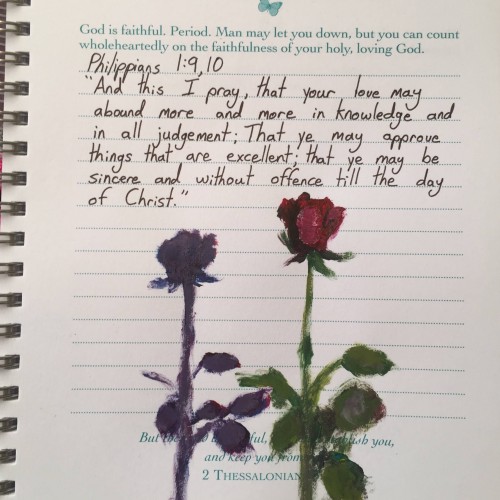 God is faithful. Period. Man may let you down, but you can count
wholeheartedly on the faithfulness of your holy, loving God.
Philippians 1:9,10
"And this I pray, that your love may
abound more and more in knowledge and
in all judgement; That ye may approve
things that are excellent; that ye may be
sincere and without offence till the day
of Christ."
But the ful, blish you,
and keep you from
2 THESSALONIAN